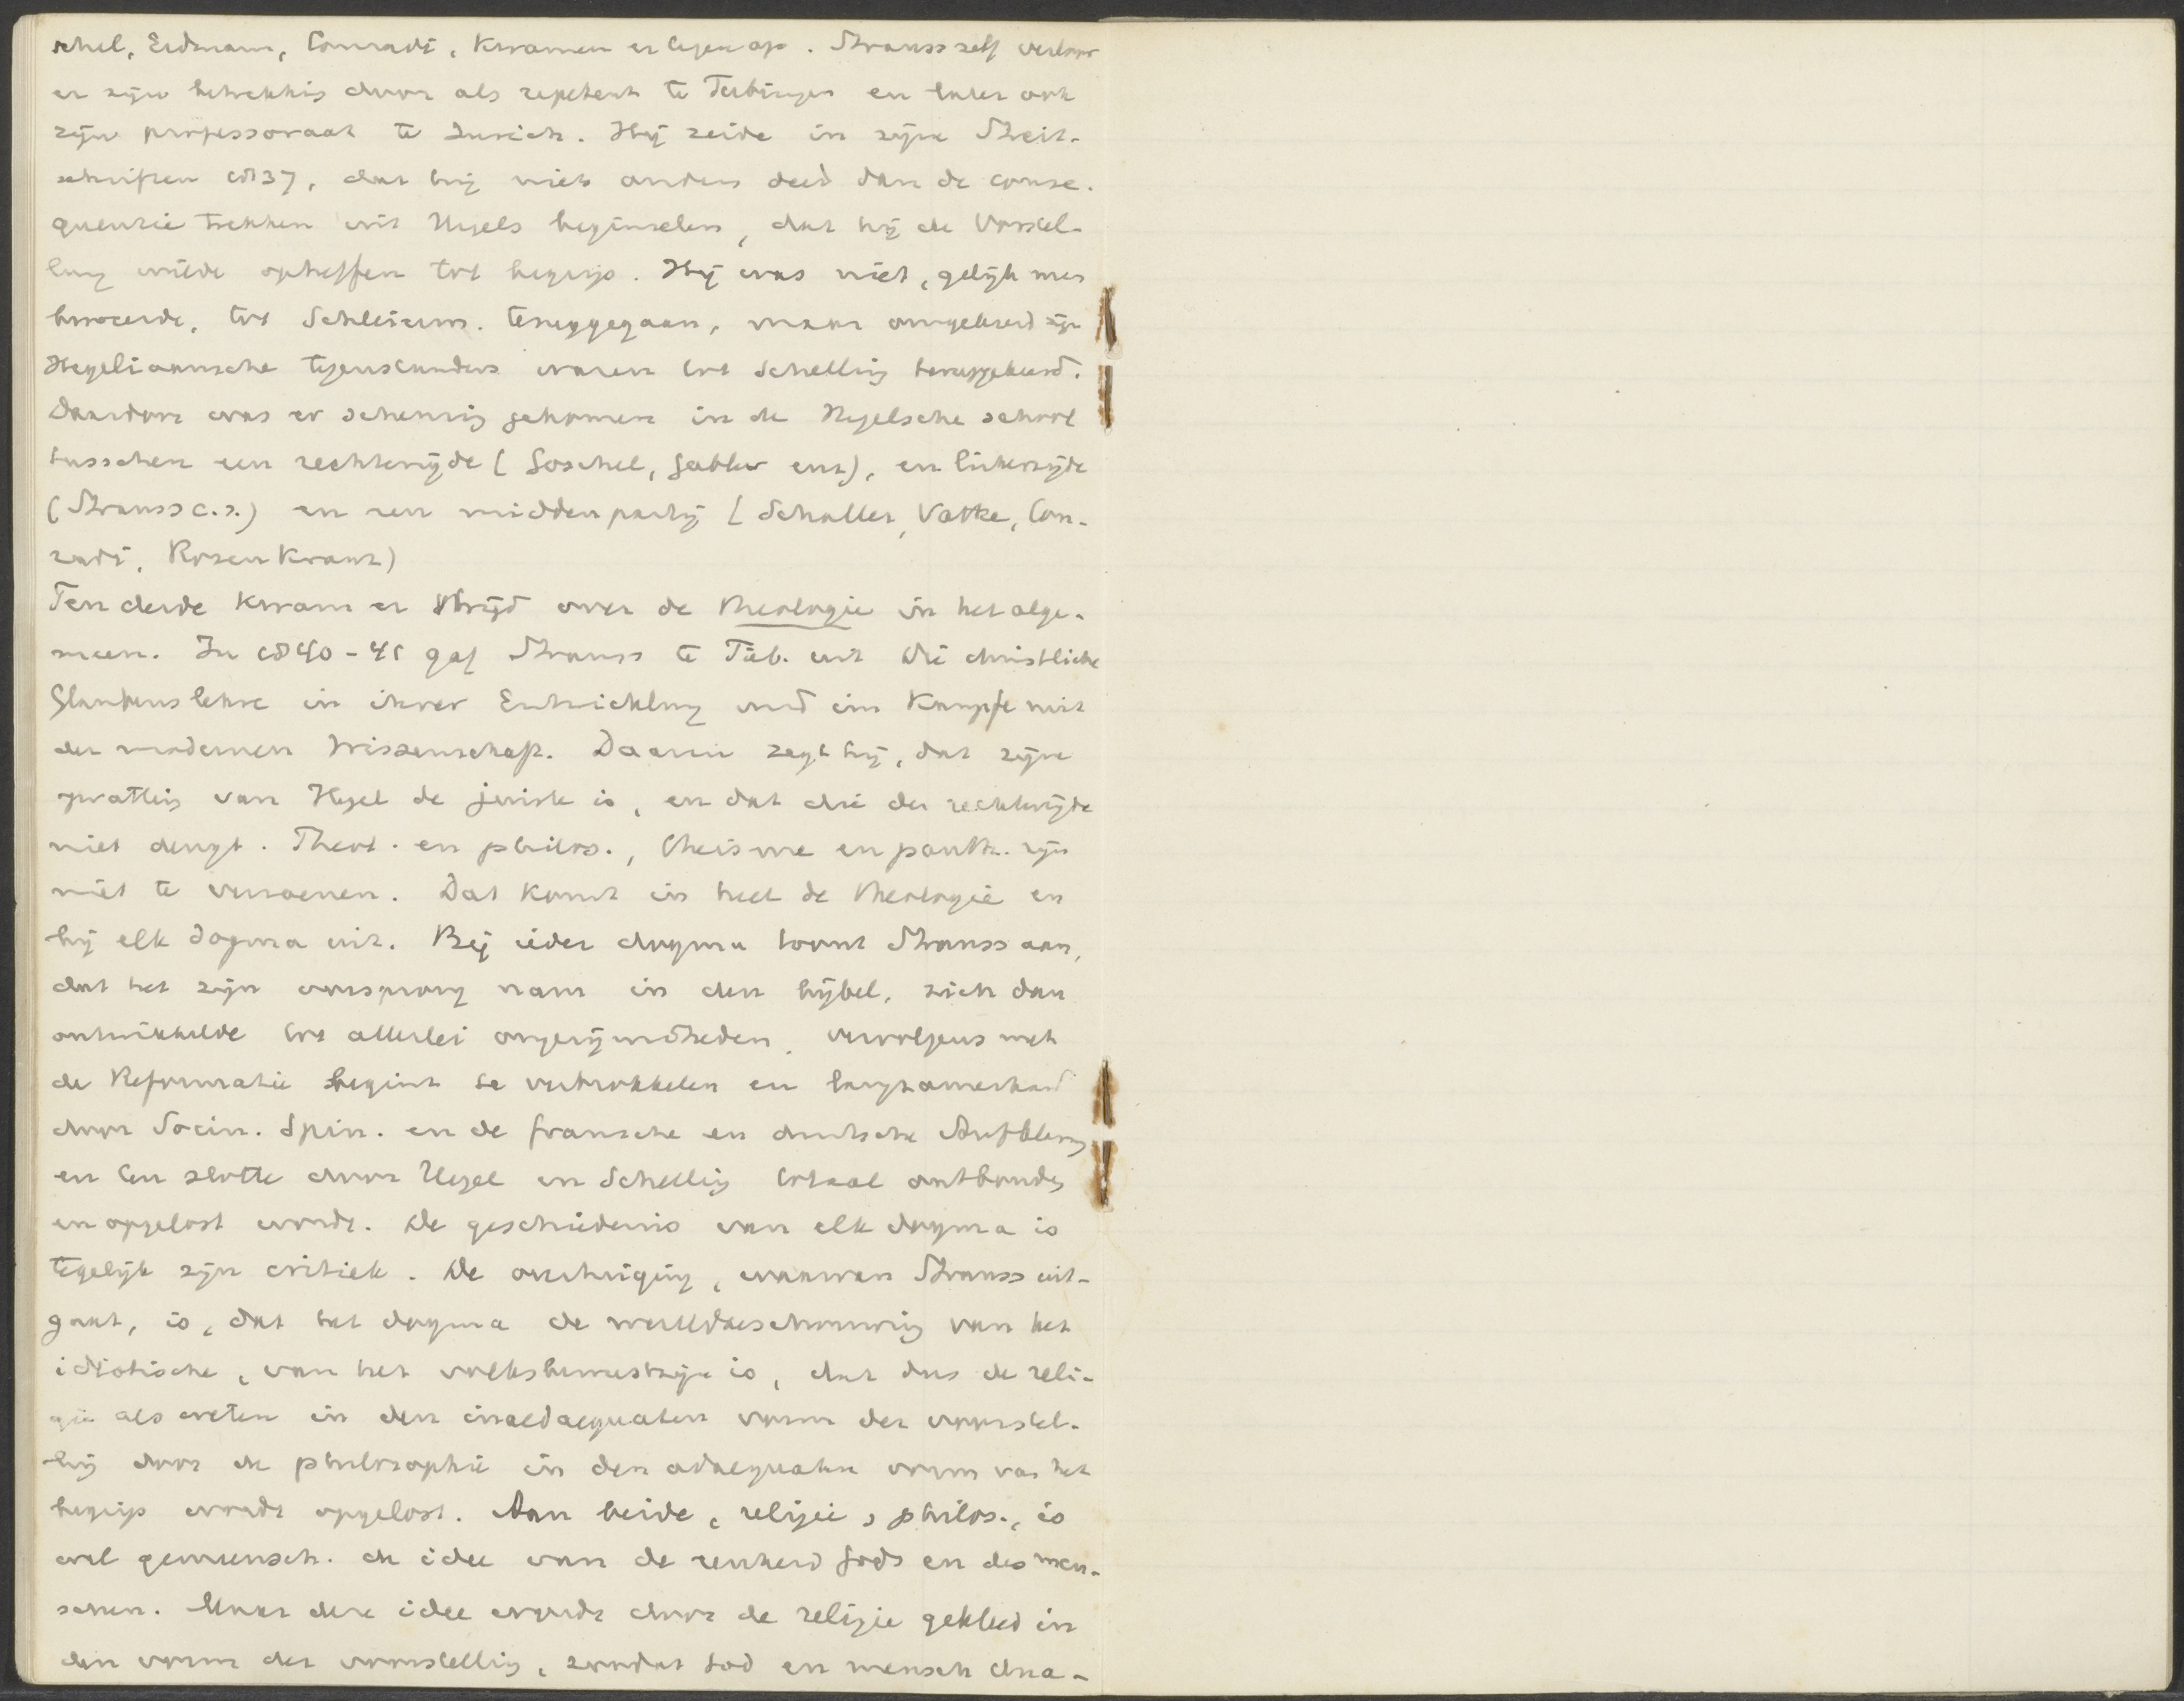 schel, Erdmann, Conradi, kwamen er tegen op. Strauss zelf verloor
er zijn betrekking door als repetent te Tubingen en later ook
zijn professoraat te Zurich. Hij zeide in zijne Streit-
schriften 1837, dat hij niets anders deed dan de conse-
quentie trekken uit Hegels beginselen, dat hij de Vorstel-
lung wilde opheffen tot begrip. Hij was niet, gelijk men
beweerde, tot Schleierm. teruggegaan, maar omgekeerd zijn
Hegeliaansche tegenstanders waren tot Schelling teruggekeerd.
Daardoor was er scheuring gekomen in de Hegelsche school
tusschen een rechterzijde (Goschel, Gabler enz), en linkerzijde
(Strauss c.s.) en een middenpartij (Schaller, Vatke, Con-
radi, Rosenkranz)
Ten derde kwam er strijd over de theologie in het alge-
meen. In 1840-41 gaf Strauss te Tüb. uit Die christliche
Glaubenslehre in ihrer Entwicklung und im Kampfe mit
der modernen Wissenschaft. Daarin zegt hij, dat zijne
opvatting van Hegel de juiste is, en dat die der rechterzijde
niet deugt. Theol. en philos., theisme en panth. zijn
niet te verzoenen. Dat komt in heel de theologie en
bij elk dogma uit. Bij ieder dogma toont Strauss aan,
dat het zijn oorsprong nam in den bijbel, zich dan
ontwikkelde tot allerlei ongerijmdheden, vervolgens met
de Reformatie begint te verbrokkelen en langzamerhand
door Socin. Spin. en de fransche en duitsche Aufklärung
en ten slotte door Hegel en Schelling totaal ontbonden
en opgelost wordt. De geschiedenis van elk dogma is
tegelijk zijn critiek. De overtuiging, waarvan Strauss uit-
gaat, is, dat het dogma de wereldbeschouwing van het
idiotische, van het volksbewustzijn is, dat dus de reli-
gie als weten in den inadaequaten vorm der voorstel-
ling door de philosophie in den adaequaten vorm van het
begrip wordt opgelost. Aan beide, religie, philos., is
wel gemeensch. de idee van de eenheid Gods en des men-
schen. Maar deze idee wordt door de religie gekleed in
den vorm der voorstelling, zoodat God en mensch dua-